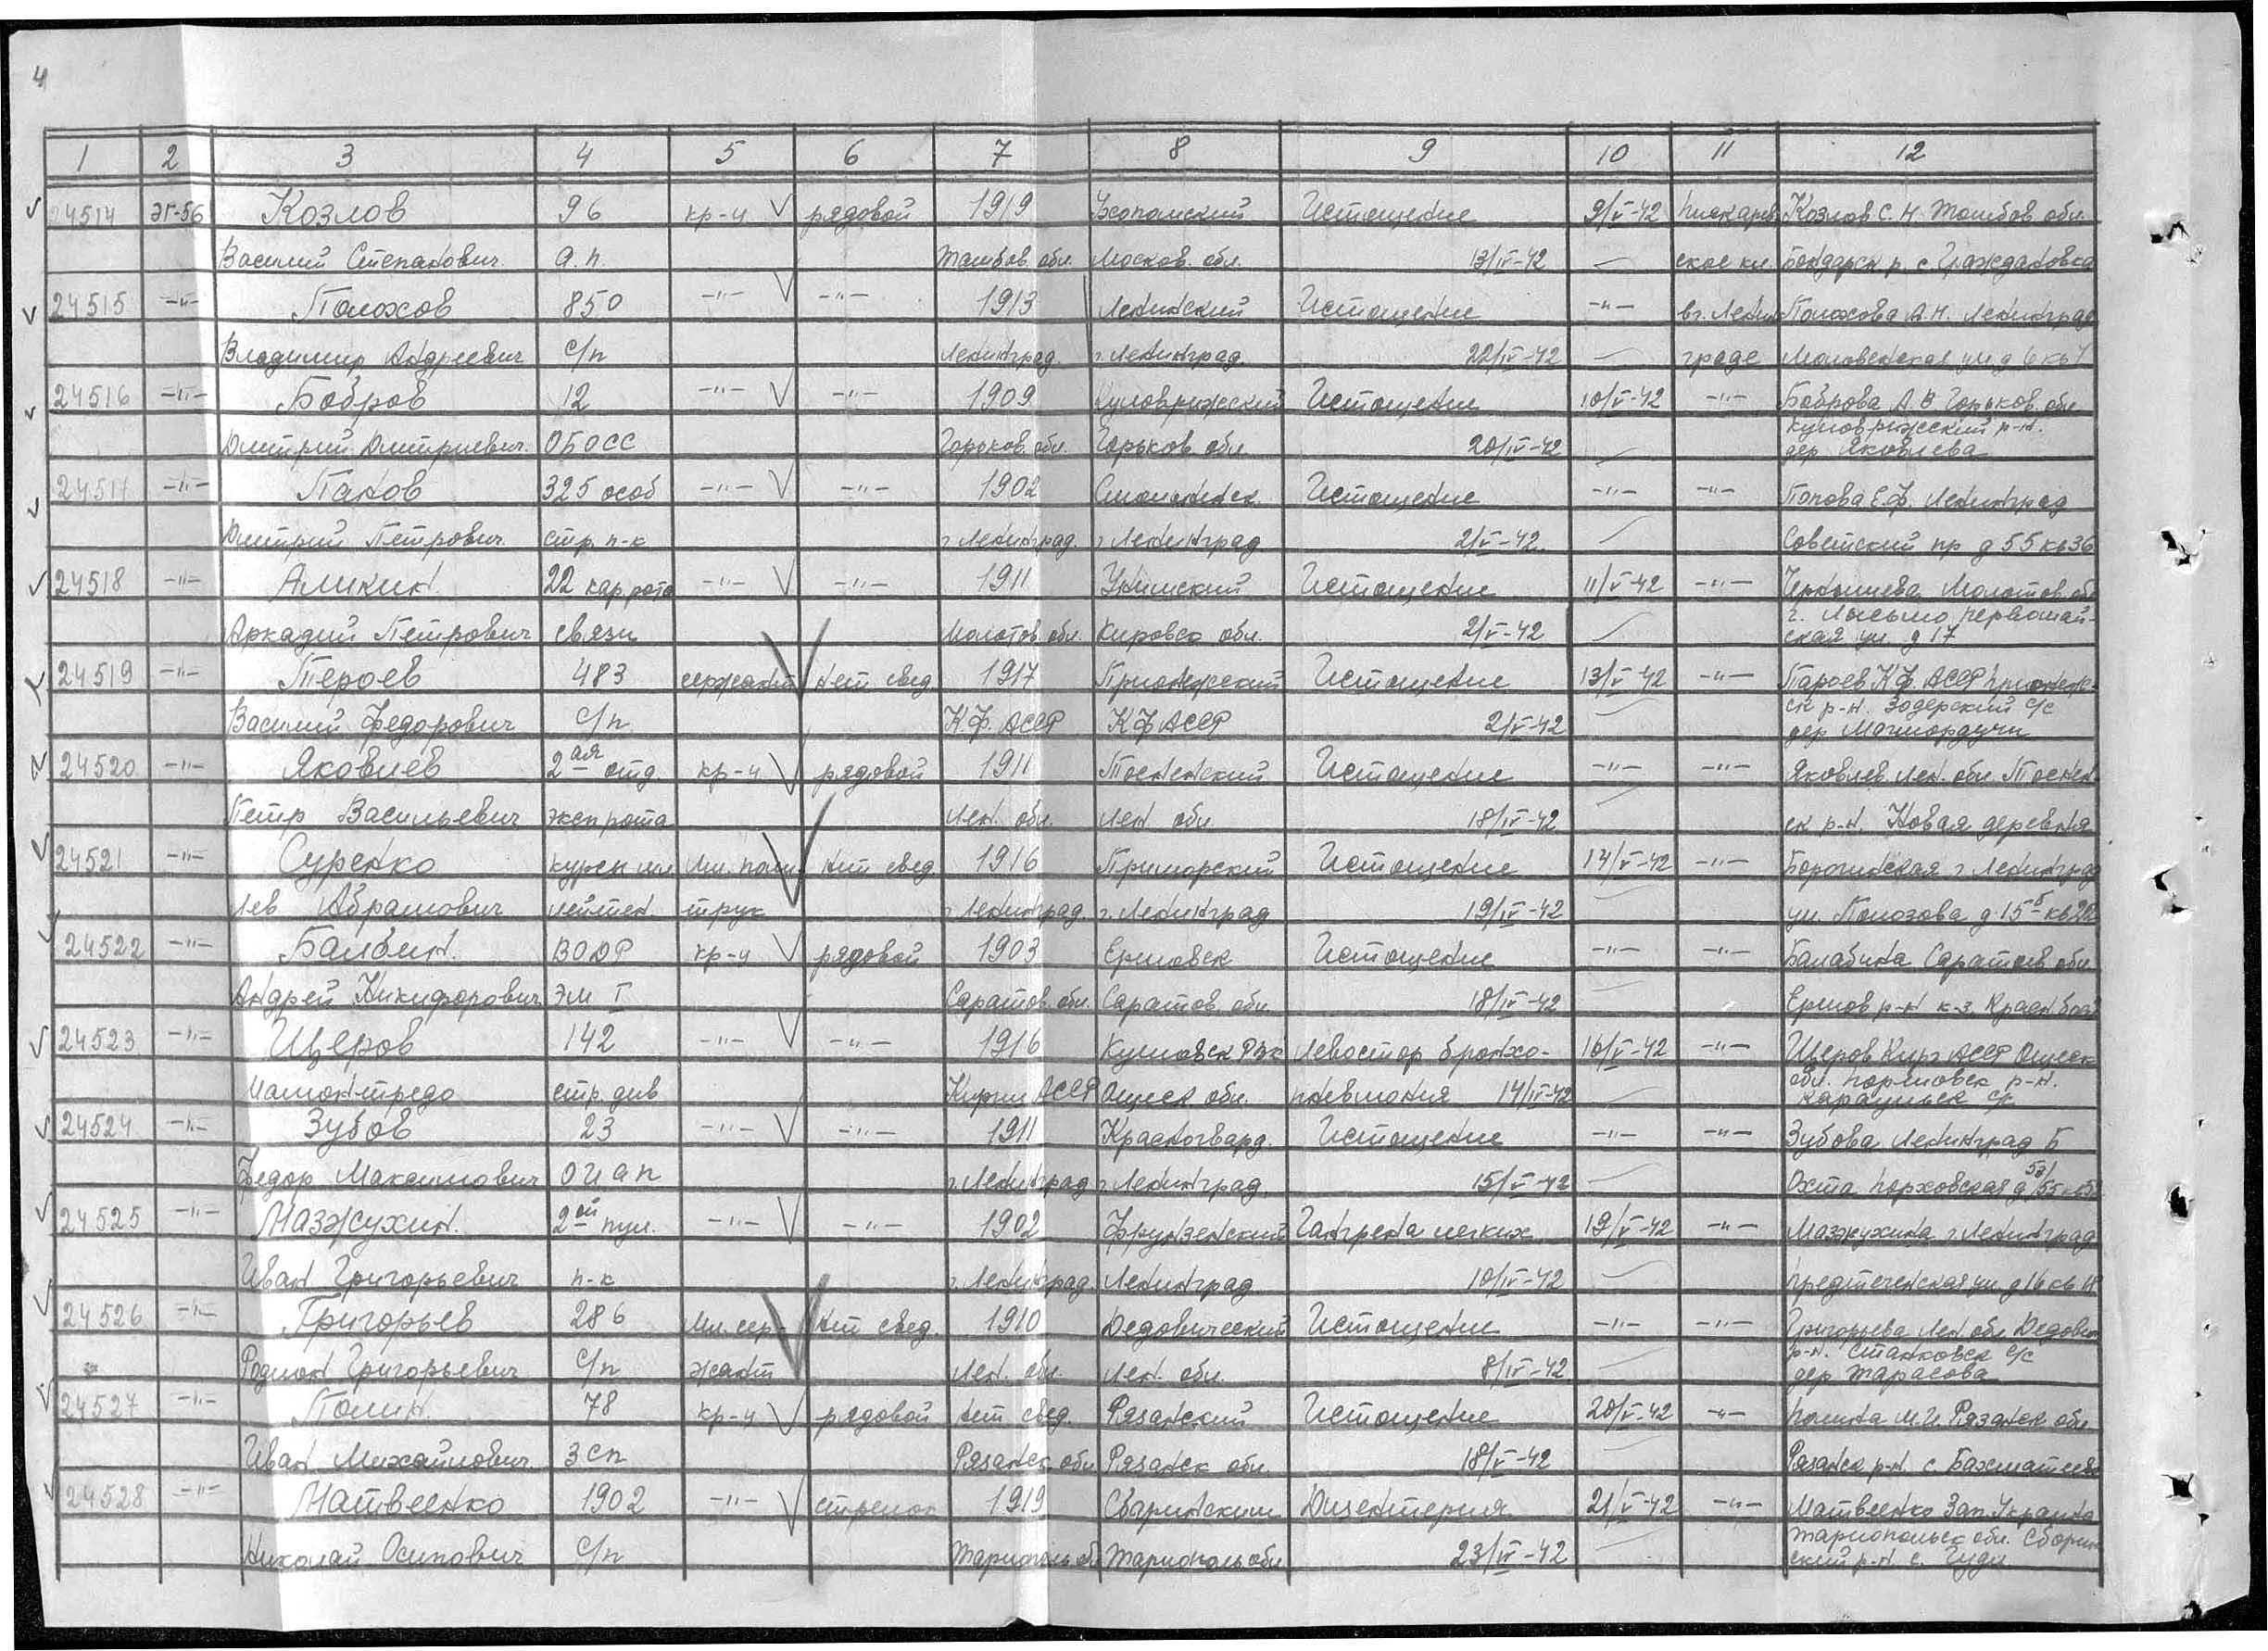 4
1 2 3 4 5 6 7 8 9 10 11 12
24514 эг-56 Козлов 96 кр-ц рядовой 1919 Ухтомский Истощение 9/V-42 Пискарев Козлов С. Н. Тамбов обл.
Василий Степанович а.п. Тамбов обл. Москов. обл. 13/IV-42 ское кл. Бондарск р. с. Граждановка
24515 -"- Полохов 850 -"- -"- 1913 Ленинский Истощение -"- в г. Ленин Полохова А. Н. Ленинград
Владимир Андреевич с/п Ленинград. г. Ленинград. 22/IV-42 граде ул д 6 кв 7
24516 -"- Бобров 12 -"- -"- 1909 Истощение 10/V-42 -"- Боброва А. В Горьков. обл
Дмитрий Дмитриевич. ОБОСС Горьков. обл. Горьков обл 20/IV-42 р-н. дер Яковлева
24517 -"- Панов 325 особ -"- -"- 1902 Смольнинск. Истощение -"- -"- Попова Е. Ф. Ленинград
Дмитрий Петрович. стр. п-к г. Ленинград. г. Ленинград 2/V-42. Советский пр д 55 кв 36
24518 -"- Аликин. 22 кар. рота -"- -"- 1911 Унинский Истощение 11/V-42 -"- Чернышева Молотов. об
Аркадий Петрович связи Молотов. обл. Кировск обл. 2/V-42 г. Лысьмо, первомай-ская ул. д 17
24519 -"- Тероев 483 сержант нет свед 1917 Прионежский Истощение 13/V-42 -"- Пароев К.Ф. АССР Прионеж-
Василий Федорович с/п К.Ф. АССР К.Ф АССР 2/V-42 ск р-н. Зодерский с/с дер
24520 -"- Яковлев 2ая отд. кр-ц рядовой 1911 Тосненский Истощение -"- -"- Яковлев Лен. обл. Тоснен
Петр Васильевич эксп рота Лен. обл. Лен обл. 18/IV-42 ск р-н. Новая деревня
24521 -"- Суренко курсы мл Мл. поли- нет свед 1916 Приморский Истощение 14/V-42 -"- г. Ленинград
Лев Абрамович лейтен трук г. Ленинград. г. Ленинград 19/IV-42 ул. Полозова д 15-б кв 22
24522 -"- Балбин. кр-ц рядовой 1903 Ершовск Истощение -"- -"- Балабина Саратов обл.
Андрей Никифорович Саратов. обл. Саратов. обл. 18/IV-42 Ершов р-н к-з Красн боец
24523 -"- Щеров 142 -"- -"- 1916 Левостор бронхо- 16/V-42 -"- Щеров Кирг АССР Ошск
стр. див Киргиз АССР Ошск. обл. пневмония 14/IV-42 обл. р-н. с/с
24524 -"- Зубов 23 -"- -"- 1911 Красногвард. Истощение -"- -"- Зубова Ленинград Б
Федор Максимович г. Ленинград г. Ленинград. 15/V-42 Охта Порховская д 53/55
24525 -"- Мазжухин. 2ой пул. -"- -"- 1902 Фрунзенский Гангрена легких 19/V-42 -"- Мазжухина г. Ленинград
Иван Григорьевич п-к г. Ленинград. Ленинград 10/IV-42 Предтеченская ул. д 16 кв 18
24526 -"- Григорьев 286 Мл. сер- нет свед. 1910 Дедовический Истощение -"- -"- Григорьева Лен обл. Дедович
Родион Григорьевич с/п жант Лен. обл. Лен. обл. 8/IV-42 р-н. Станковск с/с дер Тарасова
24527 -"- Полин 78 кр-ц рядовой нет свед. Рязанский Истощение 20/V-42 -"- Полина М. И. Рязанск обл.
Иван Михайлович. зсп Рязанск. обл Рязанск обл. 18/V-42 Рязанск р-н. с.
24528 -"- Матвеенко 1902 -"- стрелок 1919 Дизентерия 21/V-42 -"- Матвеенко Зап. Украина
Николай Осипович с/п Тарнополь об Тарнополь обл 23/IV-42 Тарнопольск обл. ский р-н с.